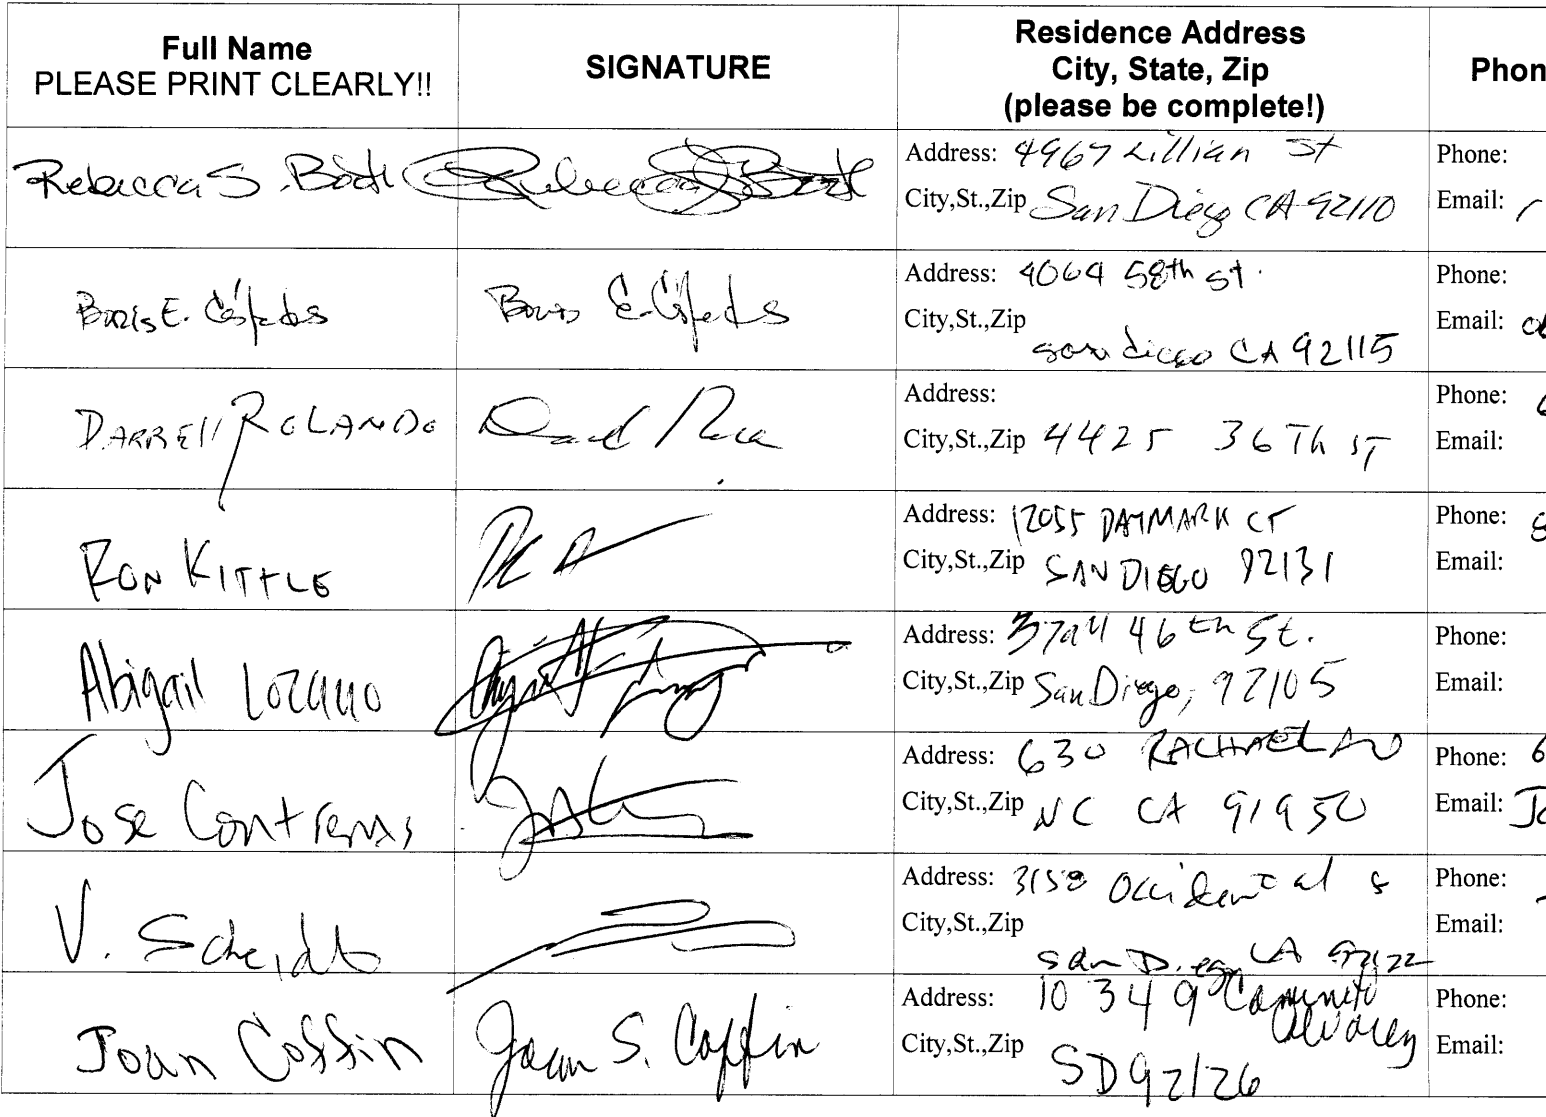 Full Name
PLEASE PRINT CLEARLY!!
SIGNATURE
Residence Address
City, State, Zip
(please be complete!)
Phon
Rebecca S.
Address: 4967 Lillian St
City,St.,Zip San Diego CA 92110
Phone:
Email:
Boris E. Céspedes
Boris E. Céspedes
Address: 4064 58th st.
City,St.,Zip
san diego CA 92115
Phone:
Email:
DARRELL ROLANDO
Address:
City,St.,Zip 4425 36Th ST
Phone: 6
Email:
RON KITTLE
Address: 12055 DAYMARK CT
City,St.,Zip SAN DIEGO 92131
Phone: 8
Email:
Abigail Lozano
Address: 46th St.
City,St.,Zip San Diego, 92105
Phone:
Email:
Jose Contreras
Address: 630 RACHAEL AV
City,St.,Zip NC CA 91950
Phone: 6
Email: Jo
V. Scheidt
Address: 3158 Occidental s
City,St.,Zip
San Diego CA 92122
Phone:
Email:
Joan Coffin
Joan S. Coffin
Address: 10349 Caminito
Alvarez
City,St.,Zip
SD 92126
Phone:
Email: